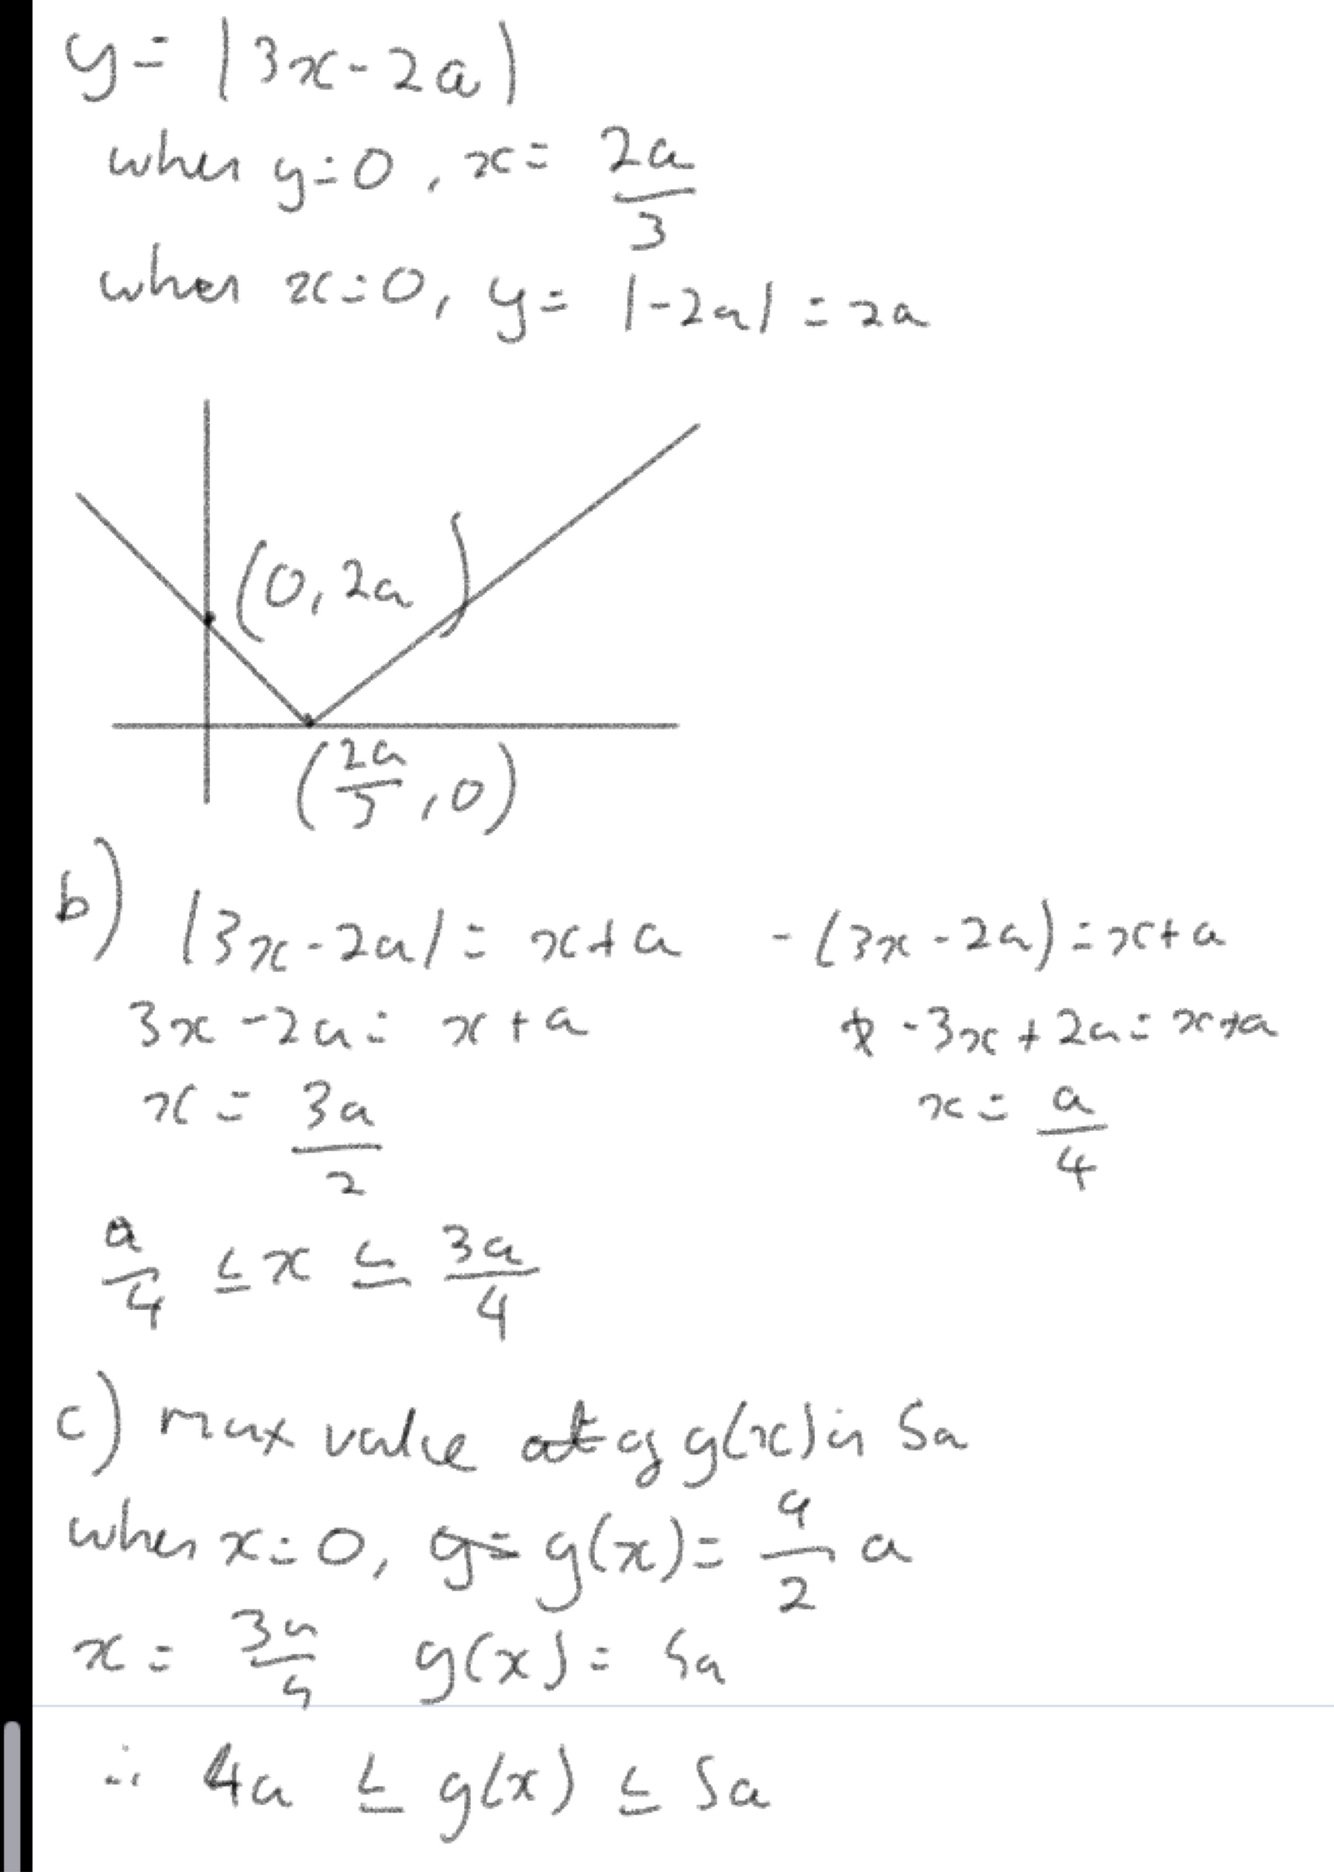 y = |3x-2a|
when y=0, x= 2a/3
when x=0, y= |-2a| = 2a
(0, 2a)
(2a/3, 0)
b) |3x-2a| = x+a    -(3x-2a) = x+a
3x-2a = x+a    -3x+2a = x+a
x = 3a/2    x = a/4
a/4 ≤ x ≤ 3a/4
c) max value of g(x) is 5a
when x=0, g(x) = 9/2 a
x = 3a/4  g(x) = 5a
∴ 4a ≤ g(x) ≤ 5a